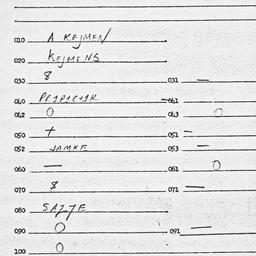 010 A KEJMEN
020 KEJMENS
030 8 031 —
040 041
042 0 043 0
050 + 051 —
052 JAMKE 053 —
060 — 061 0
070 8 071 —
080 SAJJE
090 0 091 —
100 0